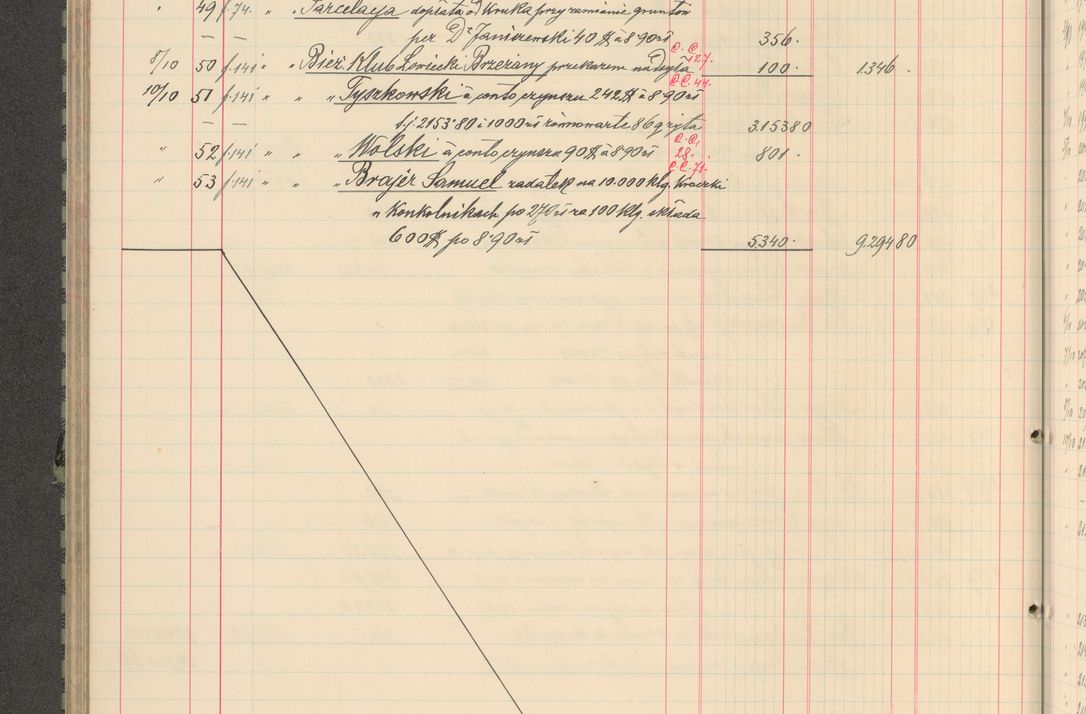 " 49 f.74. " " Parcelacja dopłata od Kruka przy zamianie gruntów
— — per Dr Janiszewski 40 $ à 8.90 zł 356.
8/10 50 f.141 " " Bież. Klub Łowiecki Brzeżany przekazem C.C. 127. 100. 1346.
10/10 51 f.141 " " " Tyszkowski à conto czynszu 242 $ à 8.90 zł C.C. 44.
— — t.j. 2153.80 i 1000 zł równowarte 86 q żyta 3.15380
" 52 f.141 " " " Wolski à conto czynszu 90 $ à 8.90 zł C.C. 28. 801.
" 53 f.141 " " " Brajer Samuel zadatek na 10.000 klg. C.C. 71.
w Konkolnikach po 270 zł za 100 klg. składa
600 $ po 8.90 zł 5340. 9.29480